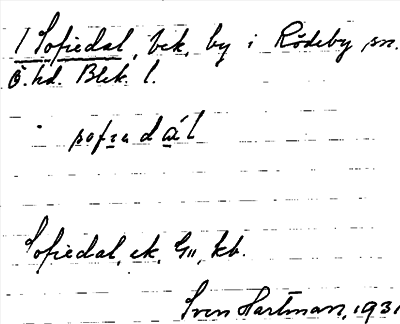 1 Sofiedal, bek, by i Rödeby sn.
Ö. hd. Blek. l.
sofıadál
Sofiedal, ek, G11, kb.
Sven Hartman, 1931